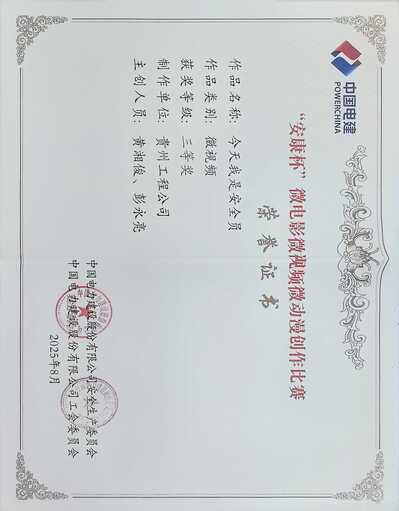 中国电建
POWERCHINA
“安康杯”微电影微视频微动漫创作比赛
荣誉证书
作品名称：今天我是安全员
作品类别：微视频
获奖等级：三等奖
制作单位：贵州工程公司
主创人员：黄湘俊、彭永亮
中国电力建设股份有限公司安全生产委员会
中国电力建设股份有限公司工会委员会
2025年8月